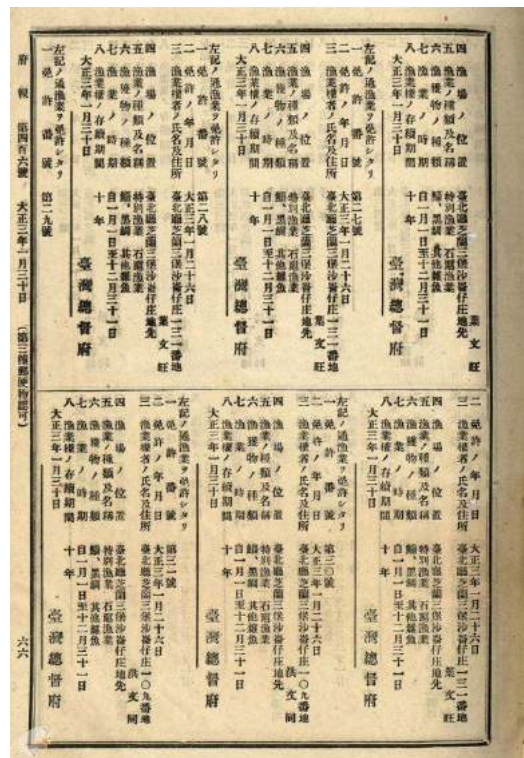 府報 第四百六號 大正三年一月三十日 (第三種郵便物認可) 六六
葉文旺
四 漁場ノ位置 臺北廳芝蘭三堡沙崙仔庄地先
五 漁業ノ種類及名稱 特別漁業 石滬漁業
六 漁獲物ノ種類 鰮、黑鯛、其他雜魚
七 漁業ノ時期 自一月一日至十二月三十一日
八 漁業權ノ存續期間 十年
大正三年一月三十日 臺灣總督府
左記ノ通漁業ヲ免許シタリ
一 免許番號 第二七號
二 免許ノ年月日 大正三年一月二十六日
三 漁業權者ノ氏名及住所 臺北廳芝蘭三堡沙崙仔庄一三一番地
葉文旺
四 漁場ノ位置 臺北廳芝蘭三堡沙崙仔庄地先
五 漁業ノ種類及名稱 特別漁業 石滬漁業
六 漁獲物ノ種類 鰮、黑鯛、其他雜魚
七 漁業ノ時期 自一月一日至十二月三十一日
八 漁業權ノ存續期間 十年
大正三年一月三十日 臺灣總督府
左記ノ通漁業ヲ免許シタリ
一 免許番號 第二八號
二 免許ノ年月日 大正三年一月二十六日
三 漁業權者ノ氏名及住所 臺北廳芝蘭三堡沙崙仔庄一三一番地
葉文旺
四 漁場ノ位置 臺北廳芝蘭三堡沙崙仔庄地先
五 漁業ノ種類及名稱 特別漁業 石滬漁業
六 漁獲物ノ種類 鰮、黑鯛 其他雜魚
七 漁業ノ時期 自一月一日至十二月三十一日
八 漁業權ノ存續期間 十年
大正三年一月三十日 臺灣總督府
左記ノ通漁業ヲ免許シタリ
一 免許番號 第二九號
二 免許ノ年月日 大正三年一月二十六日
三 漁業權者ノ氏名及住所 臺北廳芝蘭三堡沙崙仔庄一三一番地
葉文旺
四 漁場ノ位置 臺北廳芝蘭三堡沙崙仔庄地先
五 漁業ノ種類及名稱 特別漁業 石滬漁業
六 漁獲物ノ種類 鰮、黑鯛、其他雜魚
七 漁業ノ時期 自一月一日至十二月三十一日
八 漁業權ノ存續期間 十年
大正三年一月三十日 臺灣總督府
左記ノ通漁業ヲ免許シタリ
一 免許番號 第三〇號
二 免許ノ年月日 大正三年一月二十六日
三 漁業權者ノ氏名及住所 臺北廳芝蘭三堡沙崙仔庄一〇九番地
洪文同
四 漁場ノ位置 臺北廳芝蘭三堡沙崙仔庄地先
五 漁業ノ種類及名稱 特別漁業 石滬漁業
六 漁獲物ノ種類 鰮、黑鯛 其他雜魚
七 漁業ノ時期 自一月一日至十二月三十一日
八 漁業權ノ存續期間 十年
大正三年一月三十日 臺灣總督府
左記ノ通漁業ヲ免許シタリ
一 免許番號 第三一號
二 免許ノ年月日 大正三年一月二十六日
三 漁業權者ノ氏名及住所 臺北廳芝蘭三堡沙崙仔庄一〇九番地
洪文同
四 漁場ノ位置 臺北廳芝蘭三堡沙崙仔庄地先
五 漁業ノ種類及名稱 特別漁業 石滬漁業
六 漁獲物ノ種類 鰮、黑鯛 其他雜魚
七 漁業ノ時期 自一月一日至十二月三十一日
八 漁業權ノ存續期間 十年
大正三年一月三十日 臺灣總督府